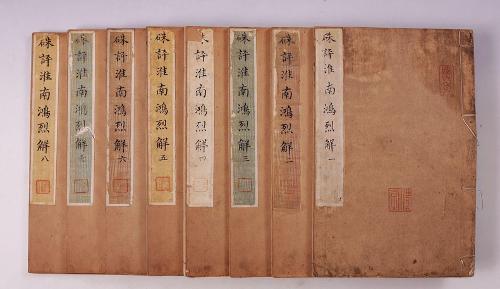 硃評淮南鴻烈解 一
硃評淮南鴻烈解 二
硃評淮南鴻烈解 三
硃評淮南鴻烈解 四
硃評淮南鴻烈解 五
硃評淮南鴻烈解 六
硃評淮南鴻烈解 七
硃評淮南鴻烈解 八